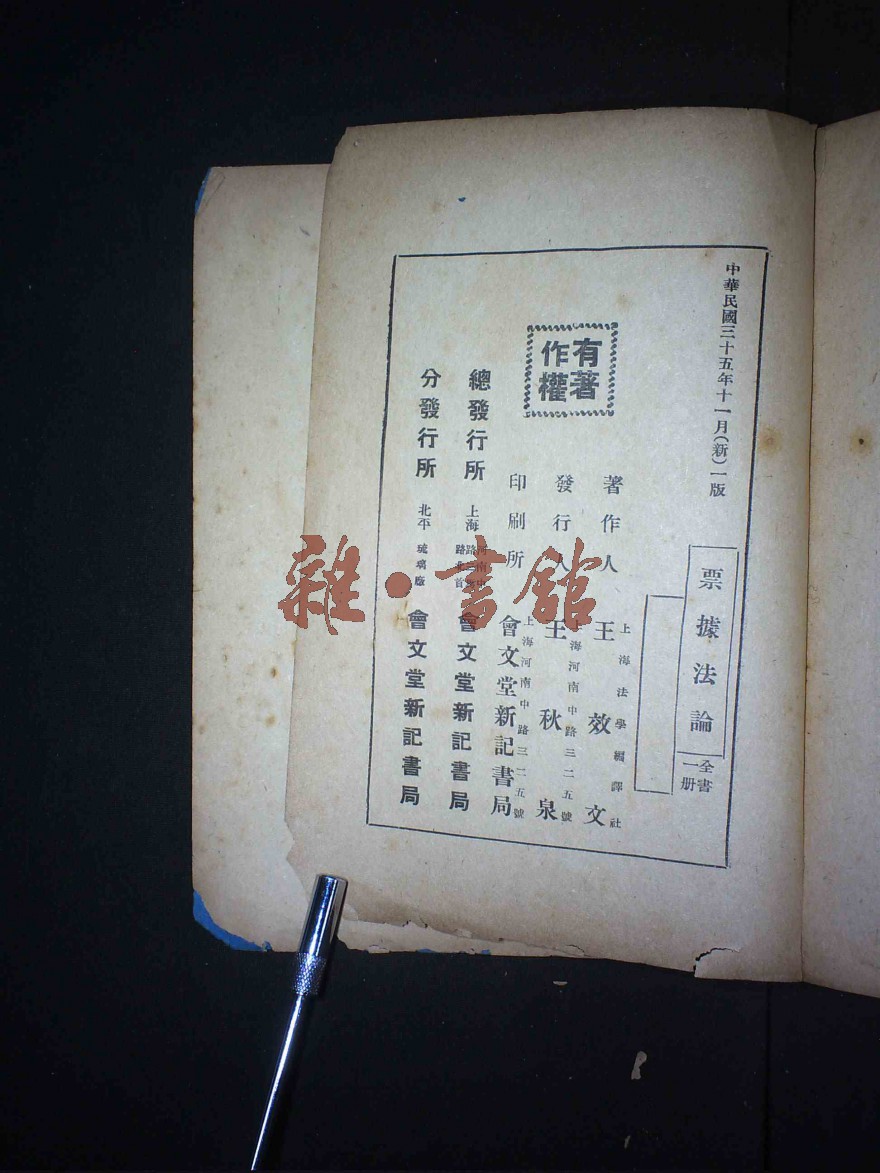 中華民國三十五年十一月(新)一版
票據法論
全書一册
著作人
上海法學編譯社
王效文
發行人
上海河南中路三二五號
王秋泉
印刷所
上海河南中路三二五號
會文堂新記書局
有著作權
總發行所
上海
會文堂新記書局
分發行所
北平
琉璃廠
會文堂新記書局
雜·書館